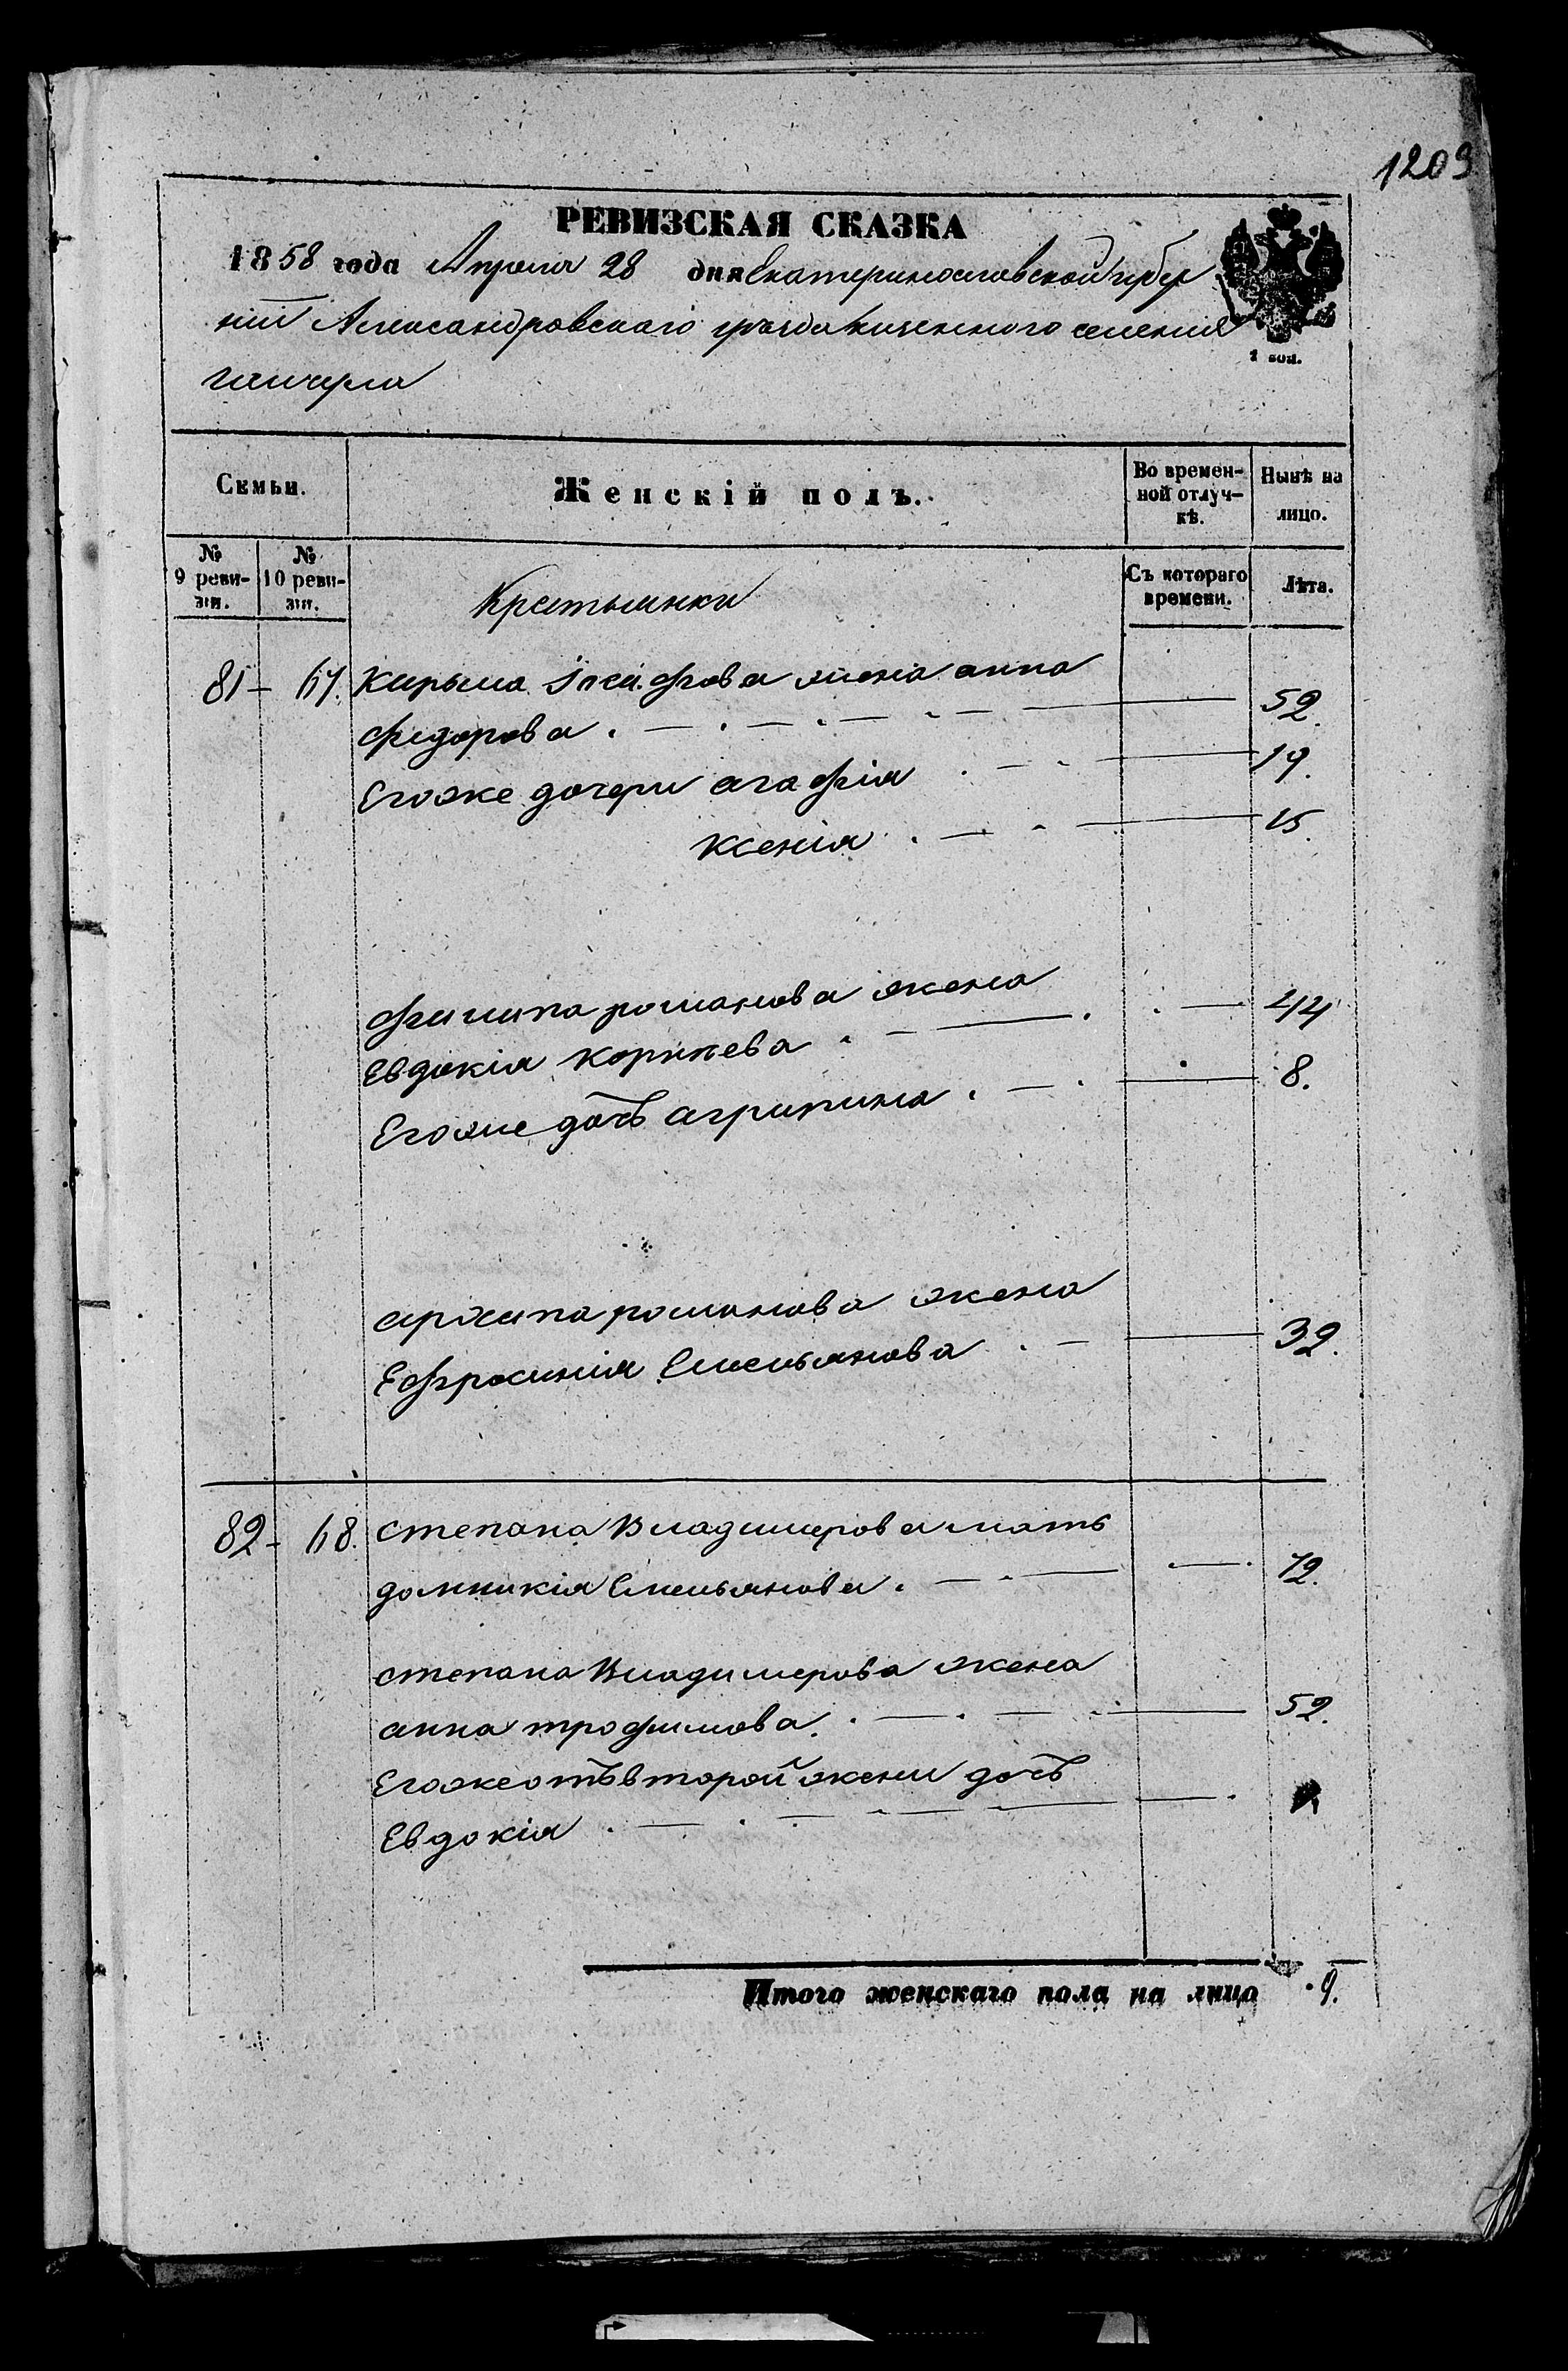 1209
РЕВИЗСКАЯ СКАЗКА
1858 года Апреля 28 дня Екатеринославской губер
ніи Александровскаго уезда Казенного селения
1 коп.
Семьи.
Женскій полъ.
Во времен-
ной отлуч-
кѣ.
Нынѣ на
лицо.
№
9 реви-
зіи.
№
10 реви-
зіи.
Съ котораго
времени.
Лѣта.
Крестьянки
81 - 67. Кирыла жена анна
федорова . 52.
Егоже дочери агафія . 19.
Ксенія . 15.
филипа романова жена
Евдокія Корнѣева . 44
Егоже дочь агрипина . 8.
архипа романова жена
Ефросинія Емельянова . 32.
82 - 68. степана Владимерова мать
домникія Емельянова . 72.
степана Владимерова жена
анна трофимова . 52.
Егоже отъ второй жени дочь
Евдокія .
Итого женскаго пола на лицо 9.